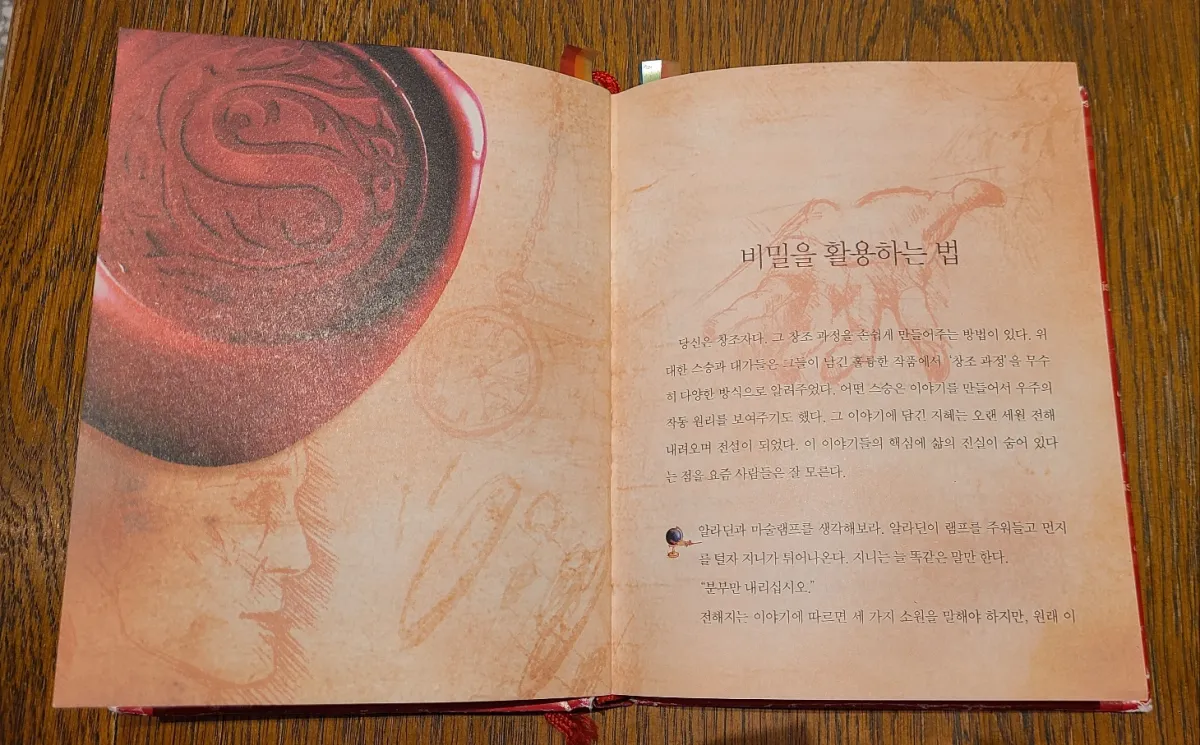 비밀을 활용하는 법
당신은 창조자다. 그 창조 과정을 손쉽게 만들어주는 방법이 있다. 위
대한 스승과 대가들은 그들이 남긴 훌륭한 작품에서 ‘창조 과정’을 무수
히 다양한 방식으로 알려주었다. 어떤 스승은 이야기를 만들어서 우주의
작동 원리를 보여주기도 했다. 그 이야기에 담긴 지혜는 오랜 세월 전해
내려오며 전설이 되었다. 이 이야기들의 핵심에 삶의 진실이 숨어 있다
는 점을 요즘 사람들은 잘 모른다.
알라딘과 마술램프를 생각해보라. 알라딘이 램프를 주워들고 먼지
를 털자 지니가 튀어나온다. 지니는 늘 똑같은 말만 한다.
“분부만 내리십시오.”
전해지는 이야기에 따르면 세 가지 소원을 말해야 하지만, 원래 이